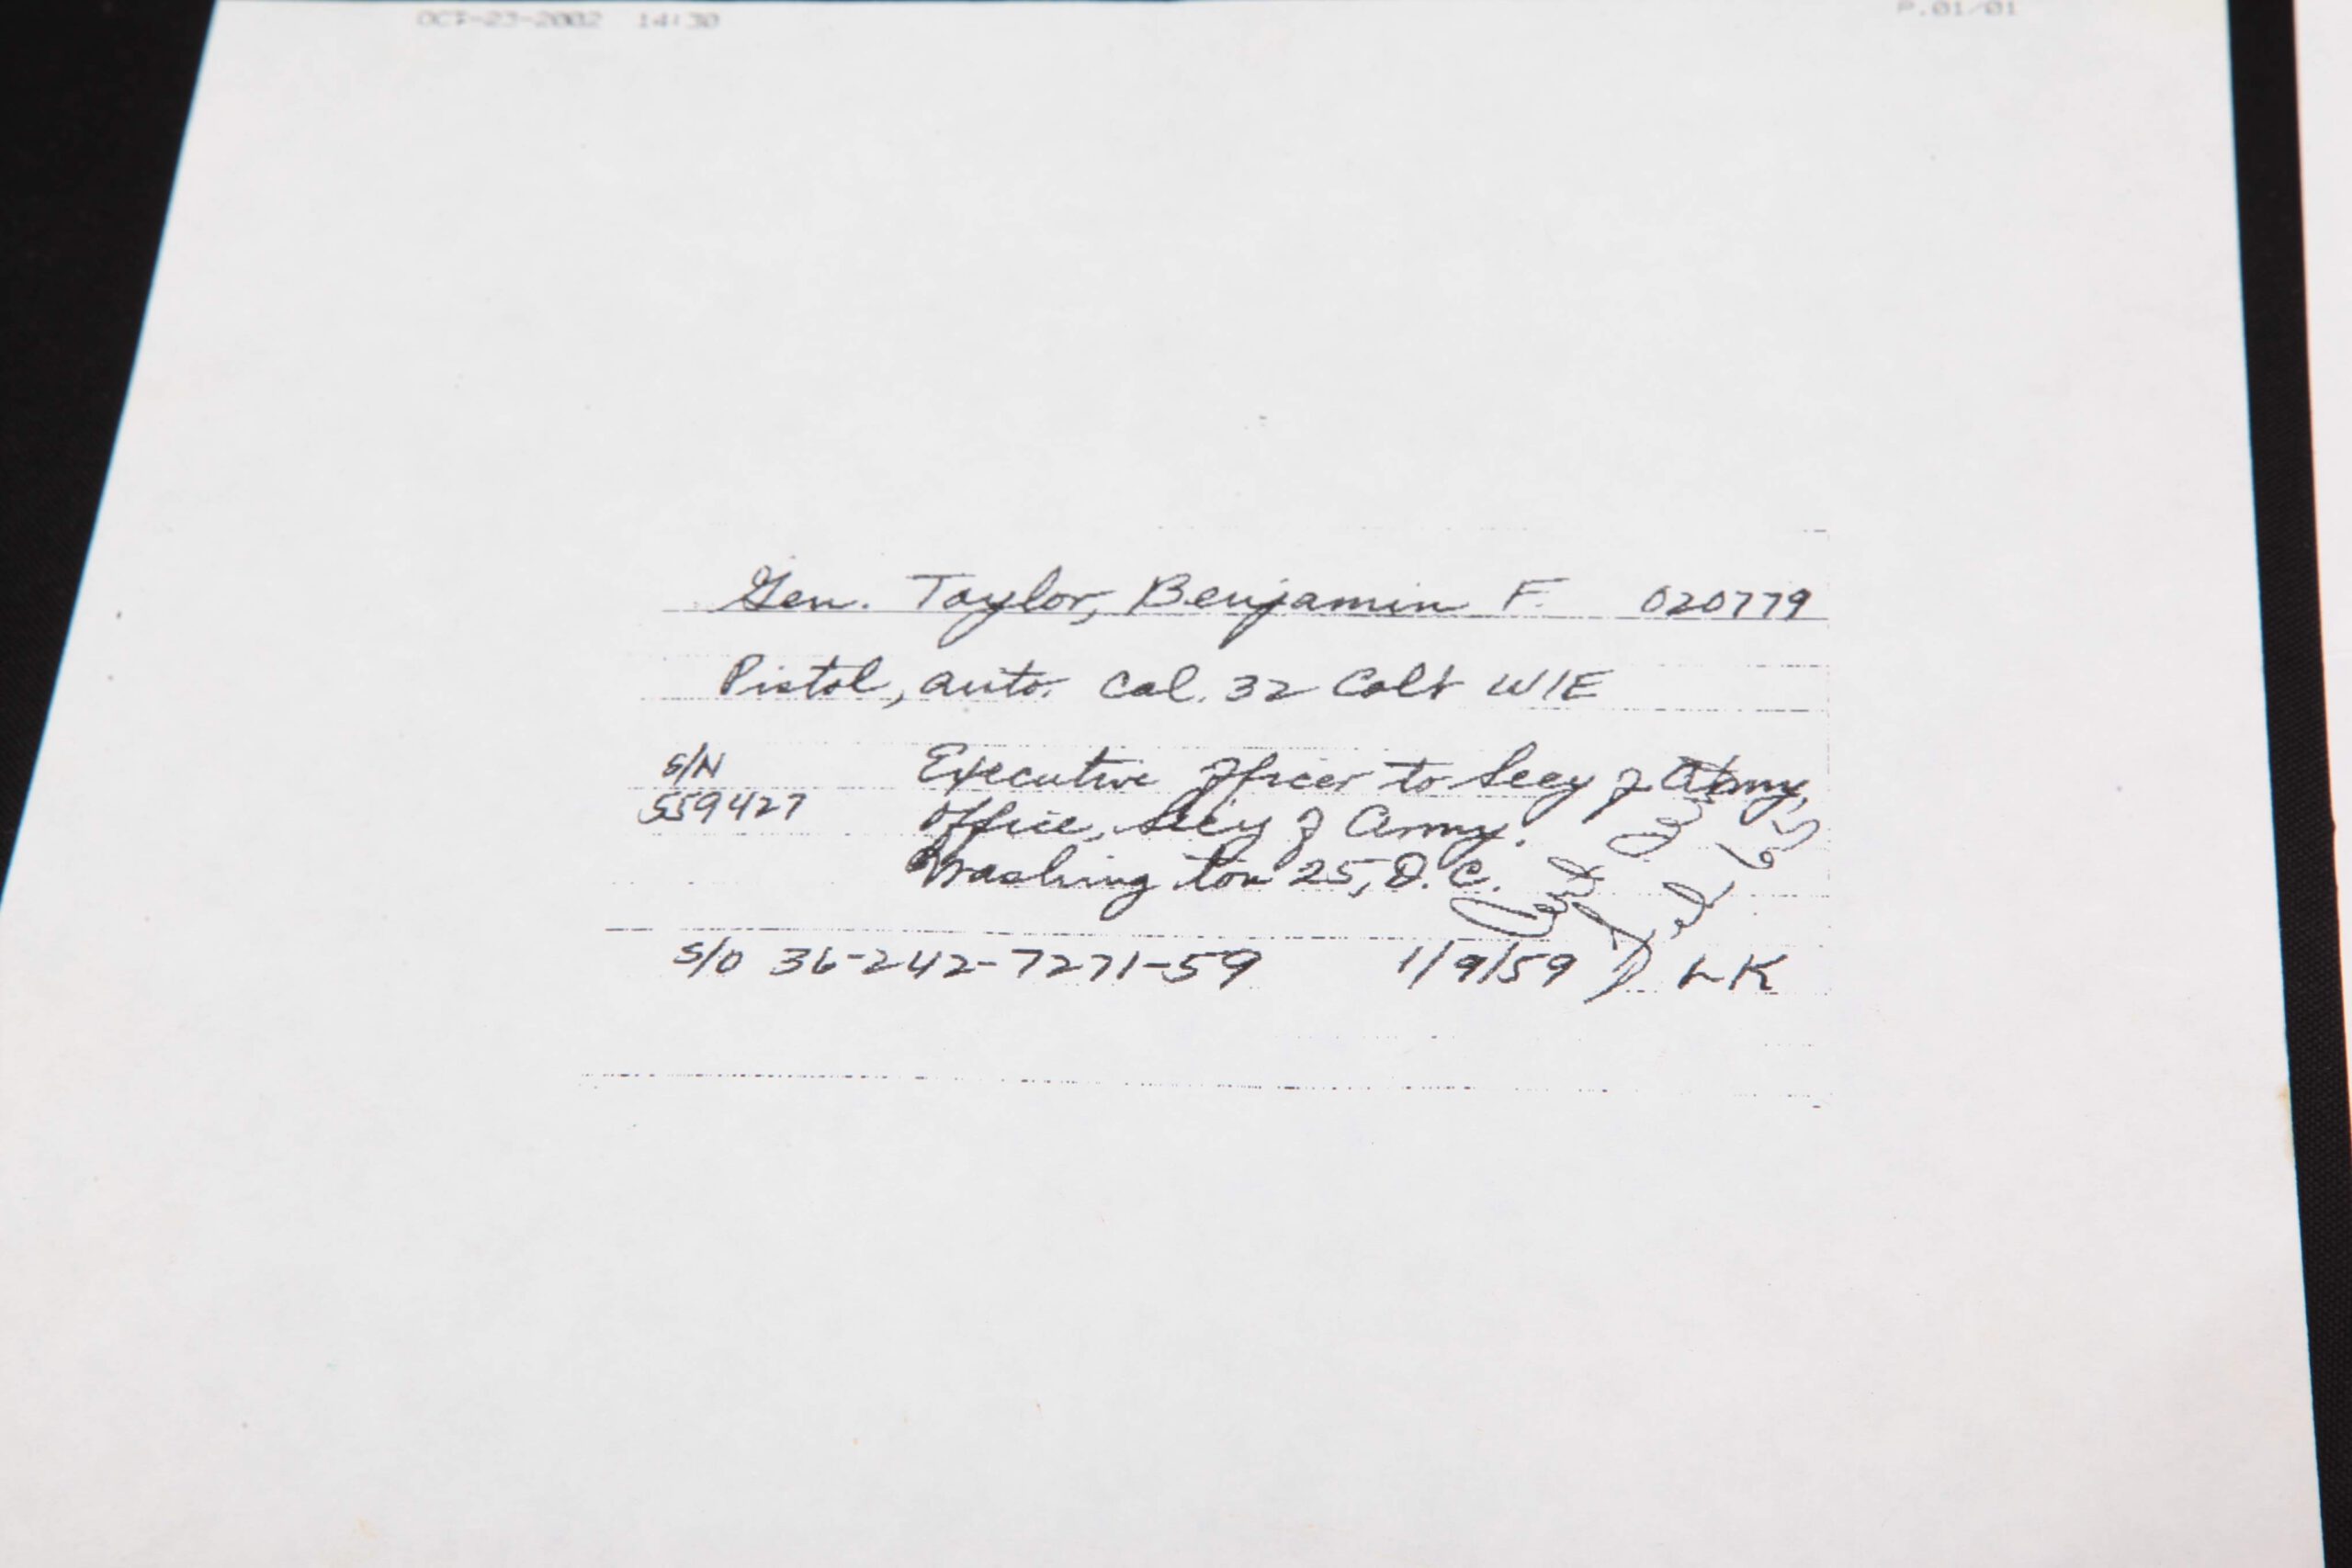 OCT-23-2002 14:30 P.01/01
Gen. Taylor, Benjamin F. 020779
Pistol, auto. Cal. 32 Colt W/E
S/N
559427
Executive Officer to Secy of Army,
Office, Secy of Army.
Washington 25, D.C.
S/O 36-242-7271-59 1/9/59 LK